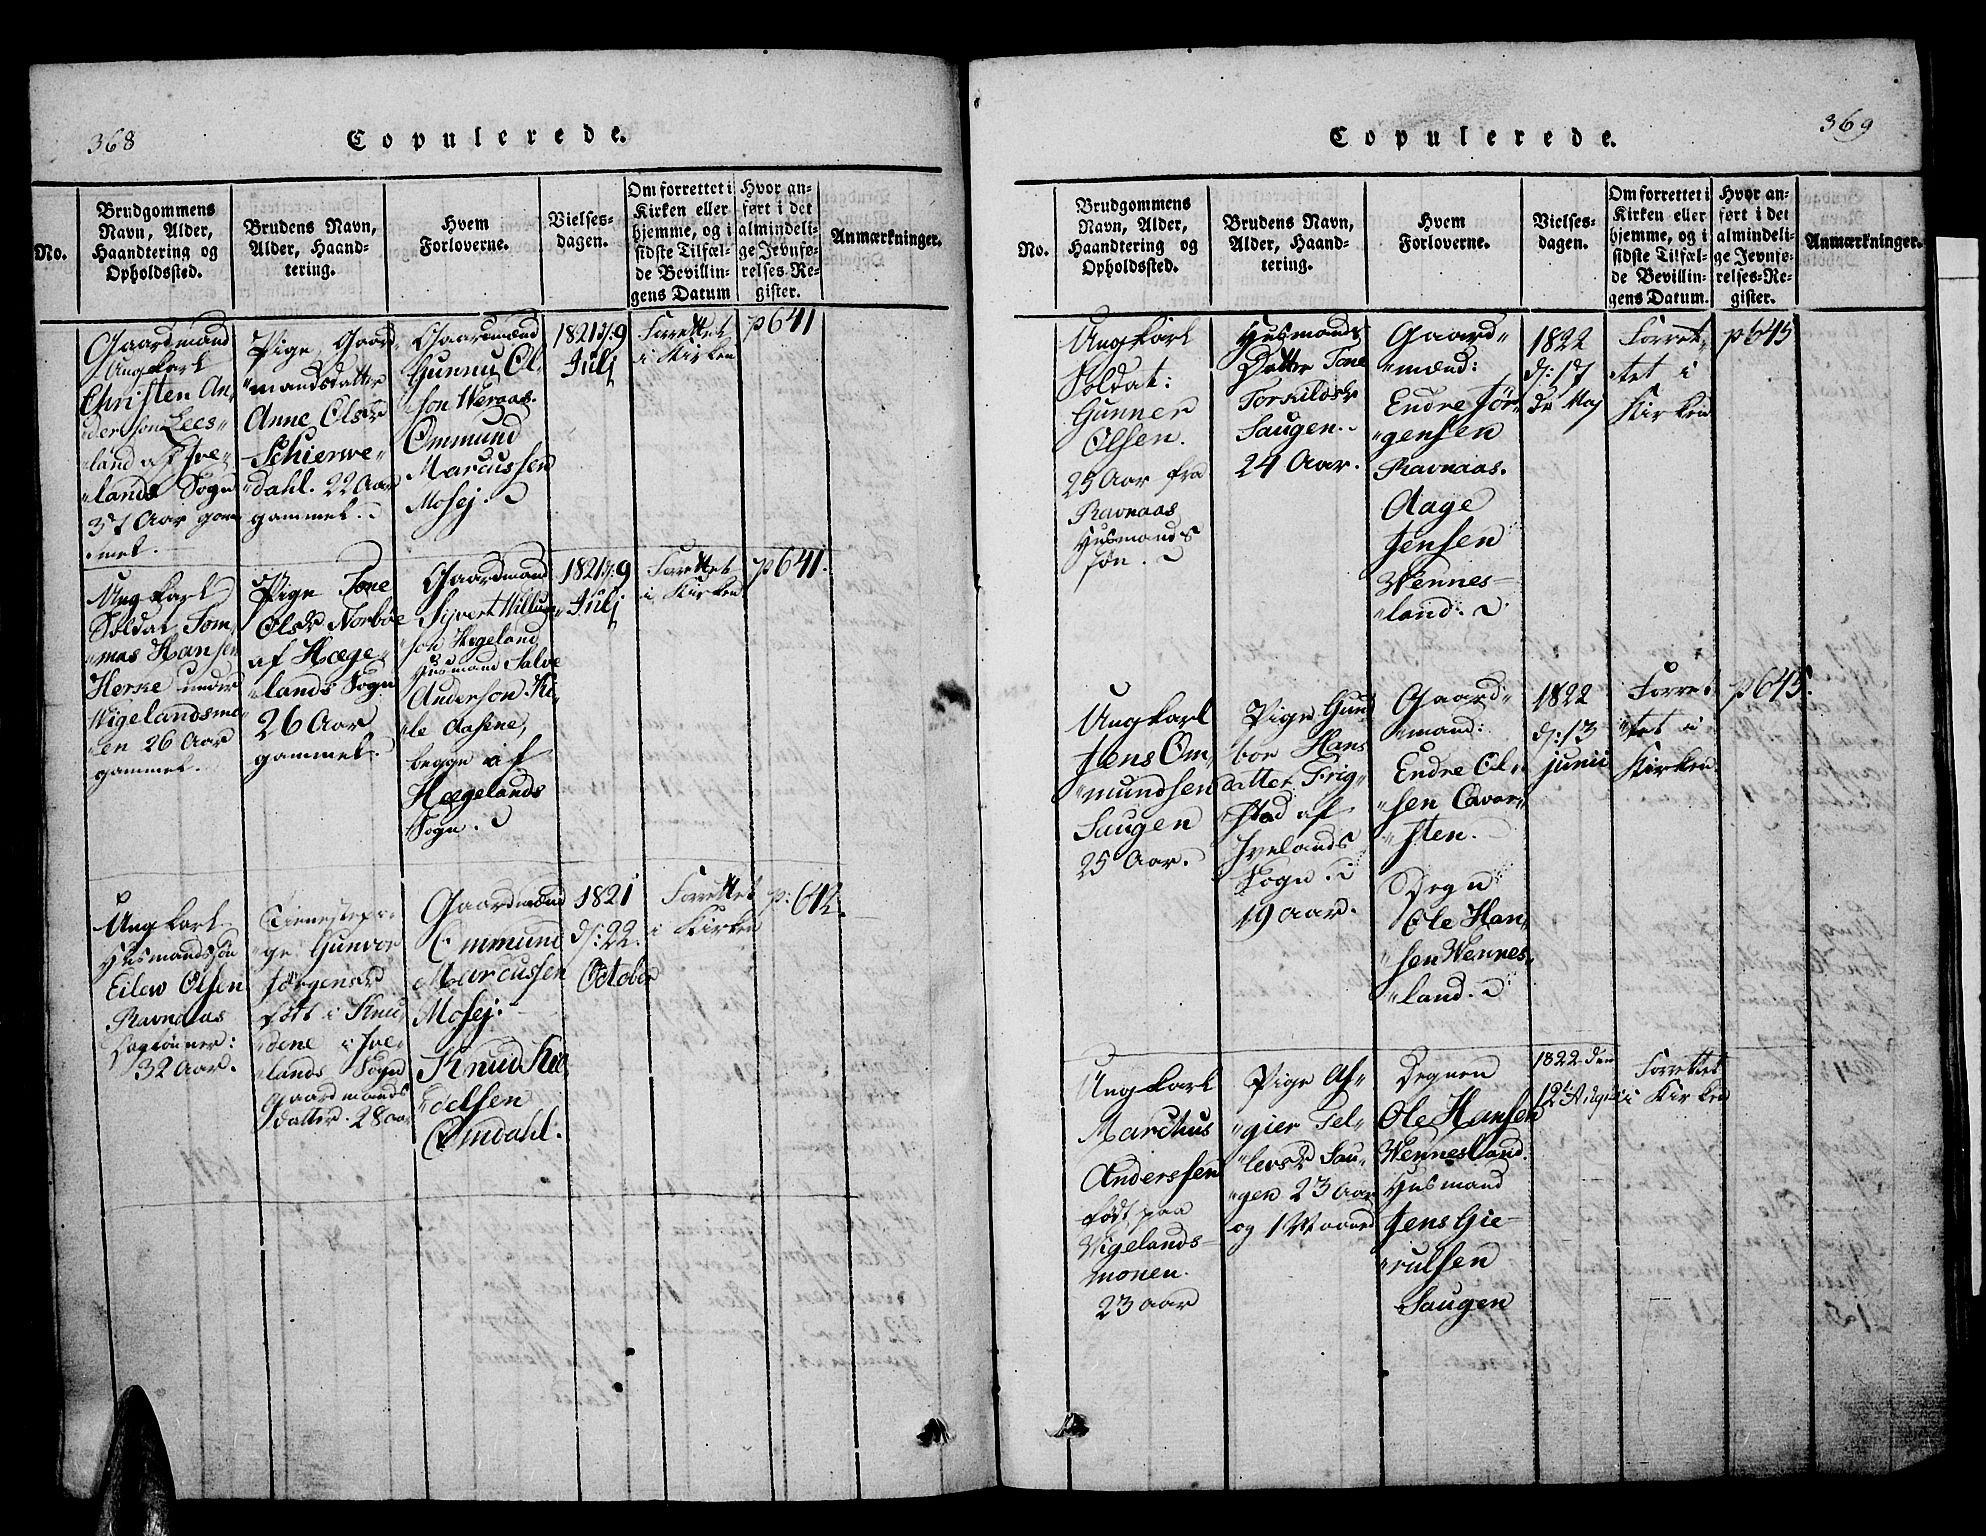 368
Copulerede.
No.
Brudgommens
Navn, Alder,
Haandtering og
Opholdssted.
Brudens Navn,
Alder, Haand-
tering.
Hvem
Forloverne.
Vielses-
dagen.
Om forrettet i
Kirken eller
hjemme, og i
sidste Tilfæl-
de Bevillin-
gens Datum
Hvor an-
ført i det
almindeli-
ge Jevnfø-
relses-Re-
gister.
Anmærkninger.
Gaardmand
Ungkarl
Christen An,
derson Lees-
land af Ive-
lands Sogn
37 Aar gam
mel.
Pige, Gaar-
mandsdatter
Anne Olsdr
Schierwe-
dahl. 22 Aar
gammel.
Gaardmænd
Gunnu Ol,
son Weraas.
Ommund
Marcussen
Mosej.
1821 d: 9
Julj
Forrettet
i Kirken
p 641
Ungkarl
Soldat Tom,
mas Hansen
Herske under
Wigelandsmo
en 26 Aar
gammel.
Pige Tone
Olsdr Norbøe
af Hæge-
lands Sogn
26 Aar
gammel.
Gaardmand
Syvert Willum
son Hegeland,
Husmand Salve
Anderson Ki-
le Aasene,
begge af
Hægelands
Sogn.
1821 d: 9
Julj
Forrettet
i Kirken
p 641.
Ungkarl
Husmandssøn
Eilew Olsen
Ravnaas
32 Aar.
Tienestepi-
ge Gunvor
Jørgensdr
født i Knu,
dene i Ive,
lands Sogn
Gaardmands
datter. 28 aar
Gaardmænd
Ommund
Marcussen
Mosej.
Knud Kie
delsen
Omdahl.
1821
d: 22.
October
Forrettet
i Kirken
p: 642.
369
Copulerede.
No.
Brudgommens
Navn, Alder,
Haandtering og
Opholdssted.
Brudens Navn,
Alder, Haand-
tering.
Hvem
Forloverne.
Vielses-
dagen.
Om forrettet i
Kirken eller
hjemme, og i
sidste Tilfæl-
de Bevillin-
gens Datum.
Hvor an-
ført i det
almindeli-
ge Jevnfø-
relses-Re-
gister.
Anmærkninger.
Ungkarl
Soldat:
Gunner
Olsen.
25 Aar fra
Ravnaas
Husmands
søn.
Husmands
Datter Tone
Torkildsdr
Saugen.
24 Aar.
Gaard-
mænd:
Endre Jør-
gensen
Ravnaas.
Aage
Jensen
Wennes-
land.
1822
d: 17
de Maj
Forret-
tet i
Kirken
p 645
Ungkarl
Jens Om,
mundsen
Saugen
25 Aar.
Pige Gun
bor Hans
datter Frig-
stad af
Ivelands
Sogn.
19 aar.
Gaard-
mand:
Endre Ol,
sen Ower-
sten.
Degn
Ole Han-
sen Wennes,
land.
1822
d: 13
junii
Forre-
tet i
Kirken.
p 645.
Ungkarl
Marchus
Anderssen
født paa
Vigelands-
monen.
23 aar
Pige As-
gier Tel-
levsdr Sau-
gen 23 aar
og 1 Maaned
Degnen
Ole Hansen
Wennesland.
Husmand
Jens Gie-
rulsen
Saugen
1822 den
12t August
Forrettet
i Kirken